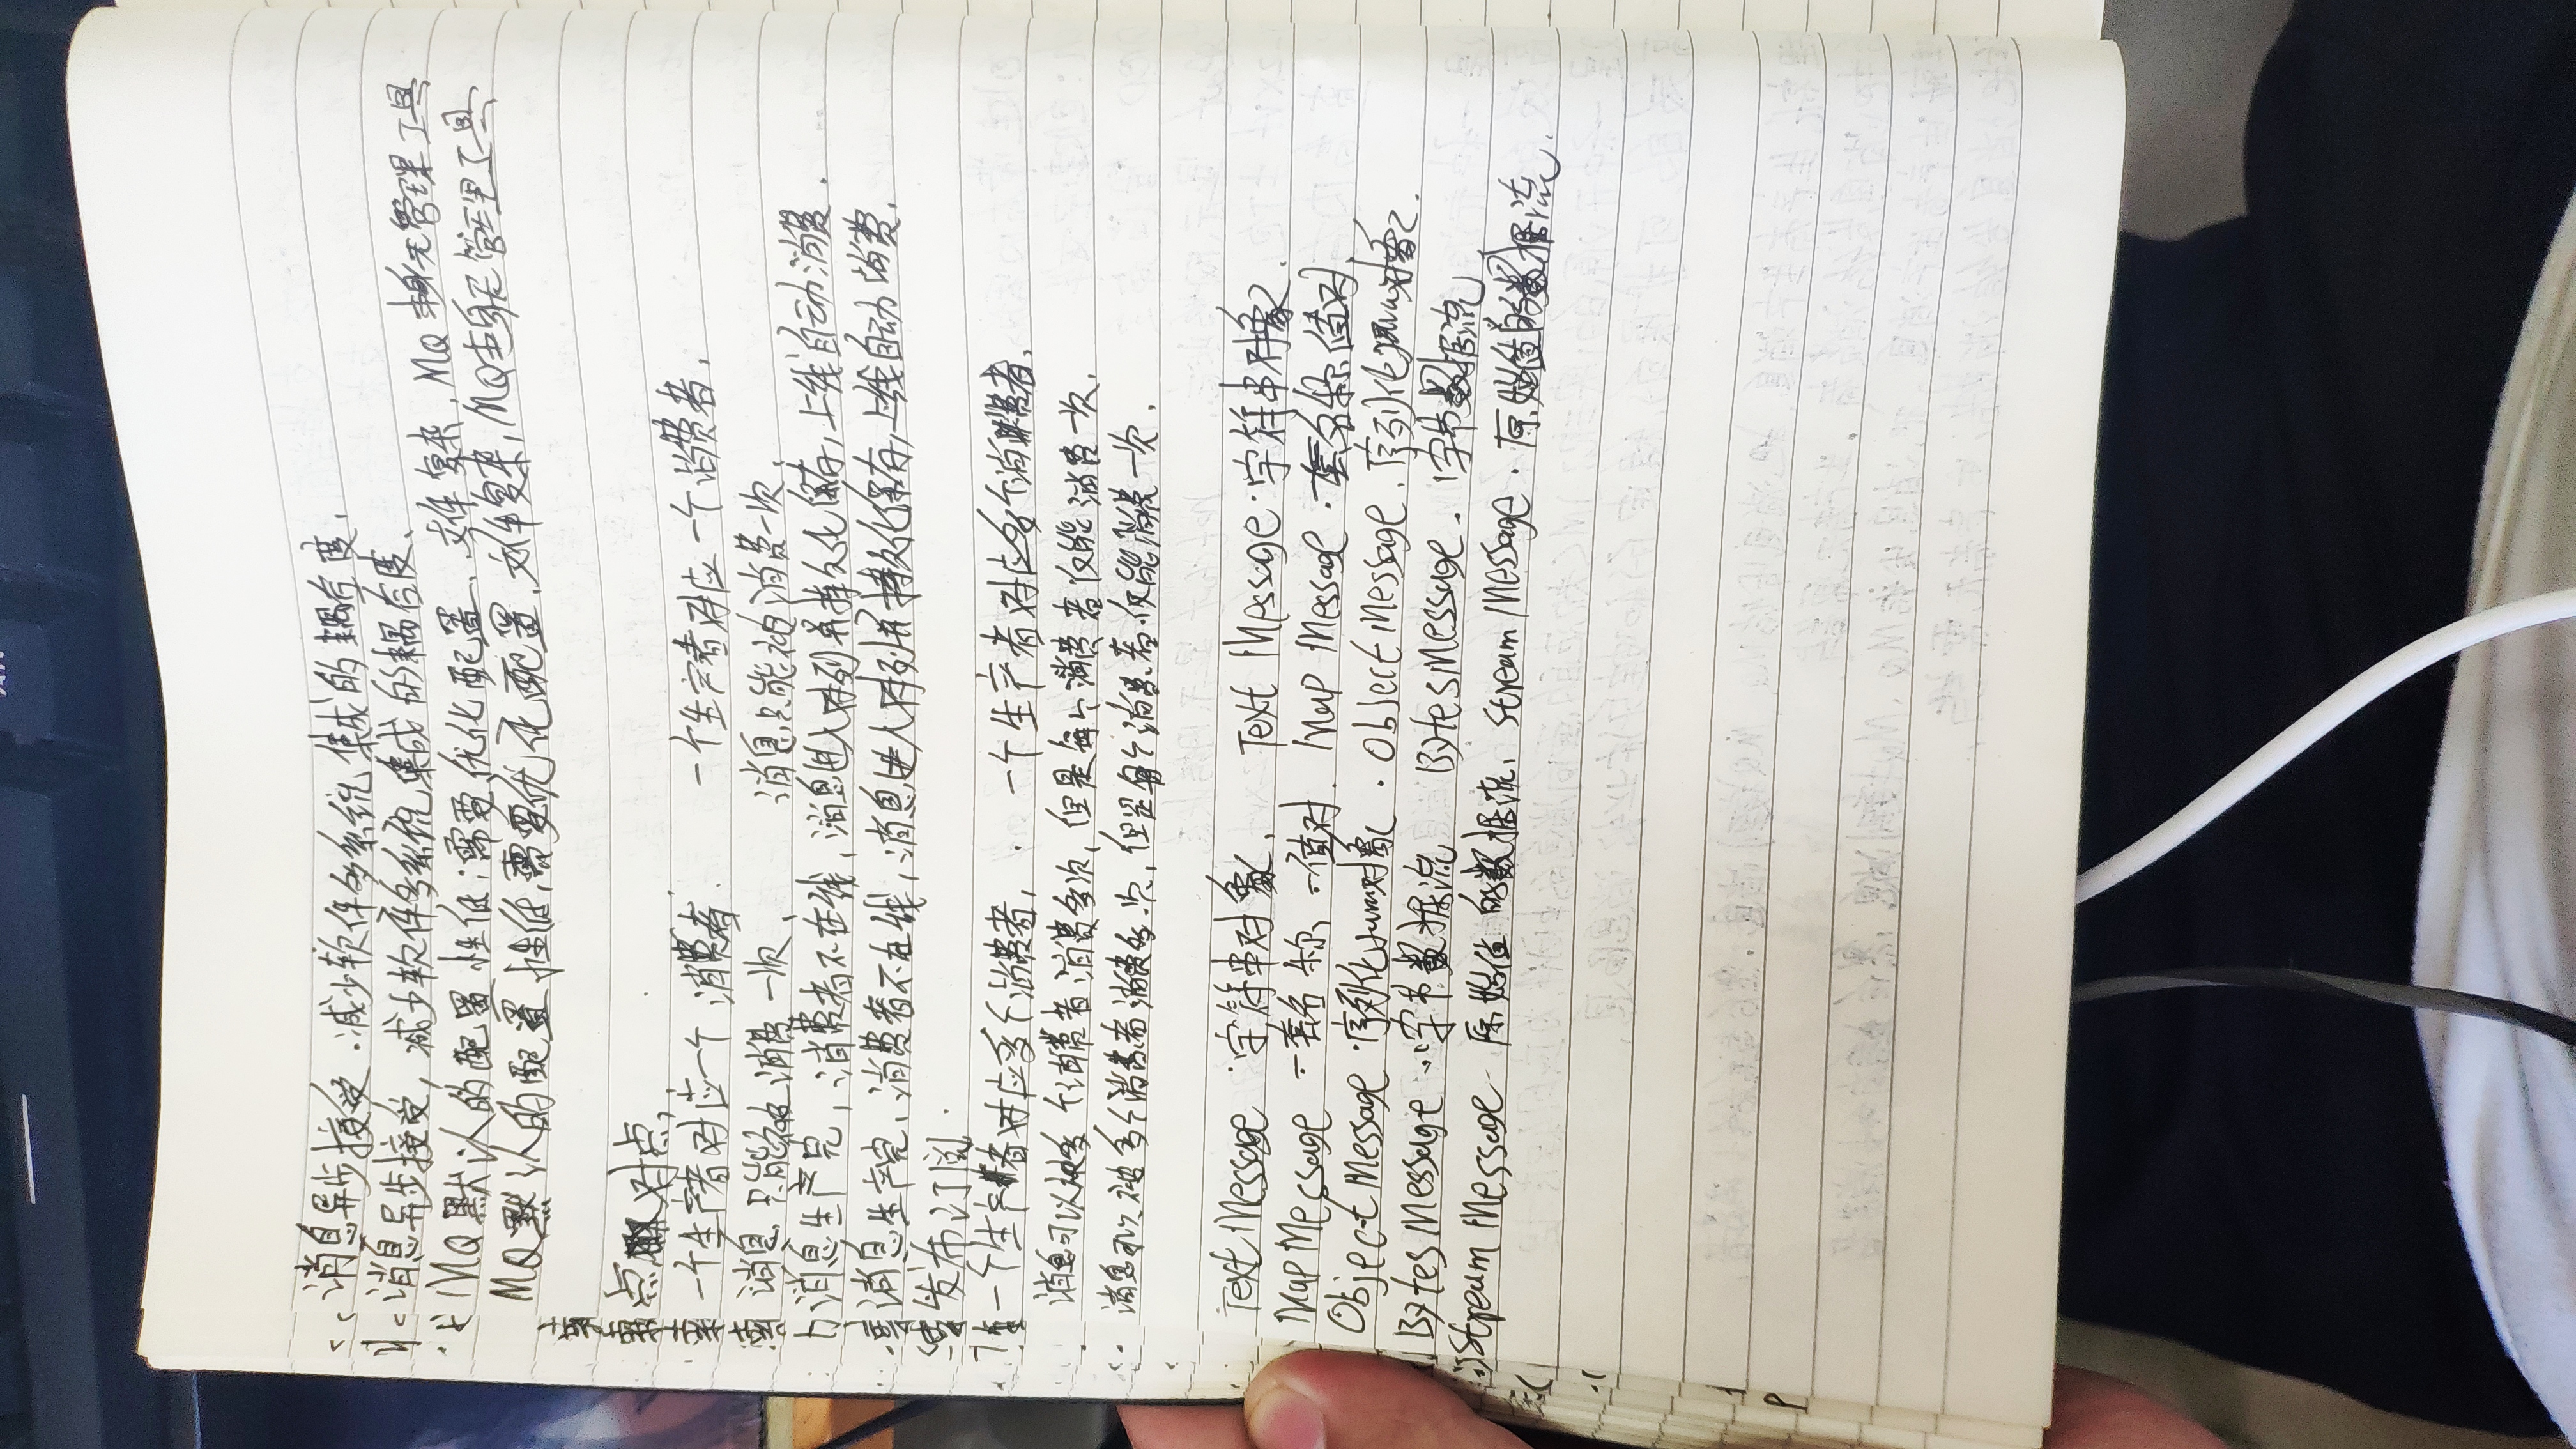 消息异步接受.减少软件多系统集成的耦合度.
消息异步接受,减少软件多系统集成的耦合度.
MQ默认的配置性低,需要优化配置.文件复杂,MQ本身无管理工具
MQ默认的配置性低,需要优化配置.文件复杂,MQ本身无管理工具
点对点,
一个生产者对应一个消费者. 一个生产者对应一个消费者.
消息只能被消费一次. 消息只能被消费一次.
消息生产完,消费者不在线,消息进入队列并持久化保存,上线自动消费.
消息生产完,消费者不在线,消息进入队列并持久化保存,上线自动消费.
发布订阅.
一个生产者对应多个消费者, 一个生产者对应多个消费者.
消息可以被多个消费者消费多次,但是每个消费者仅能消费一次.
消息可以被多个消费者消费多次,但是每个消费者仅能消费一次.
Text Message 字符串对象. Text Message.字符串对象.
Map Message 一套名称、一值对. Map Message.一套名称值对.
Object Message.序列化Java对象. Object Message.序列化Java对象.
Bytes Message.字节数据流 Bytes Message.字节数据流.
Stream Message-原始值的数据流. Stream Message.原始值的数据流.